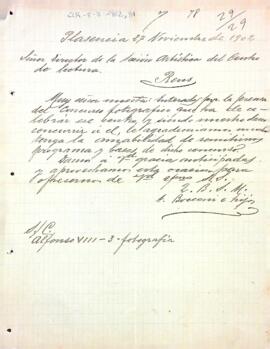 y 78 29/29
Plasencia 27 Noviembre de 1902
Señor Director de la Sección Artística del Centro
de Lectura
Reus
Muy señor nuestro: Enterados por la prensa
del Concurso fotográfico que ha de cele
brar ese centro, y siendo nuestro deseo
concurrir á él, le agradeceríamos mucho
tenga la amabilidad de remitirnos
programa y bases de dicho concurso.
Damos á Vd gracias anticipadas
y aprovechamos esta ocasión para
ofrecernos de Vd S.S.
Q. B. S. M.
é hijos
S/C
Alfonso VIII-3-fotografía